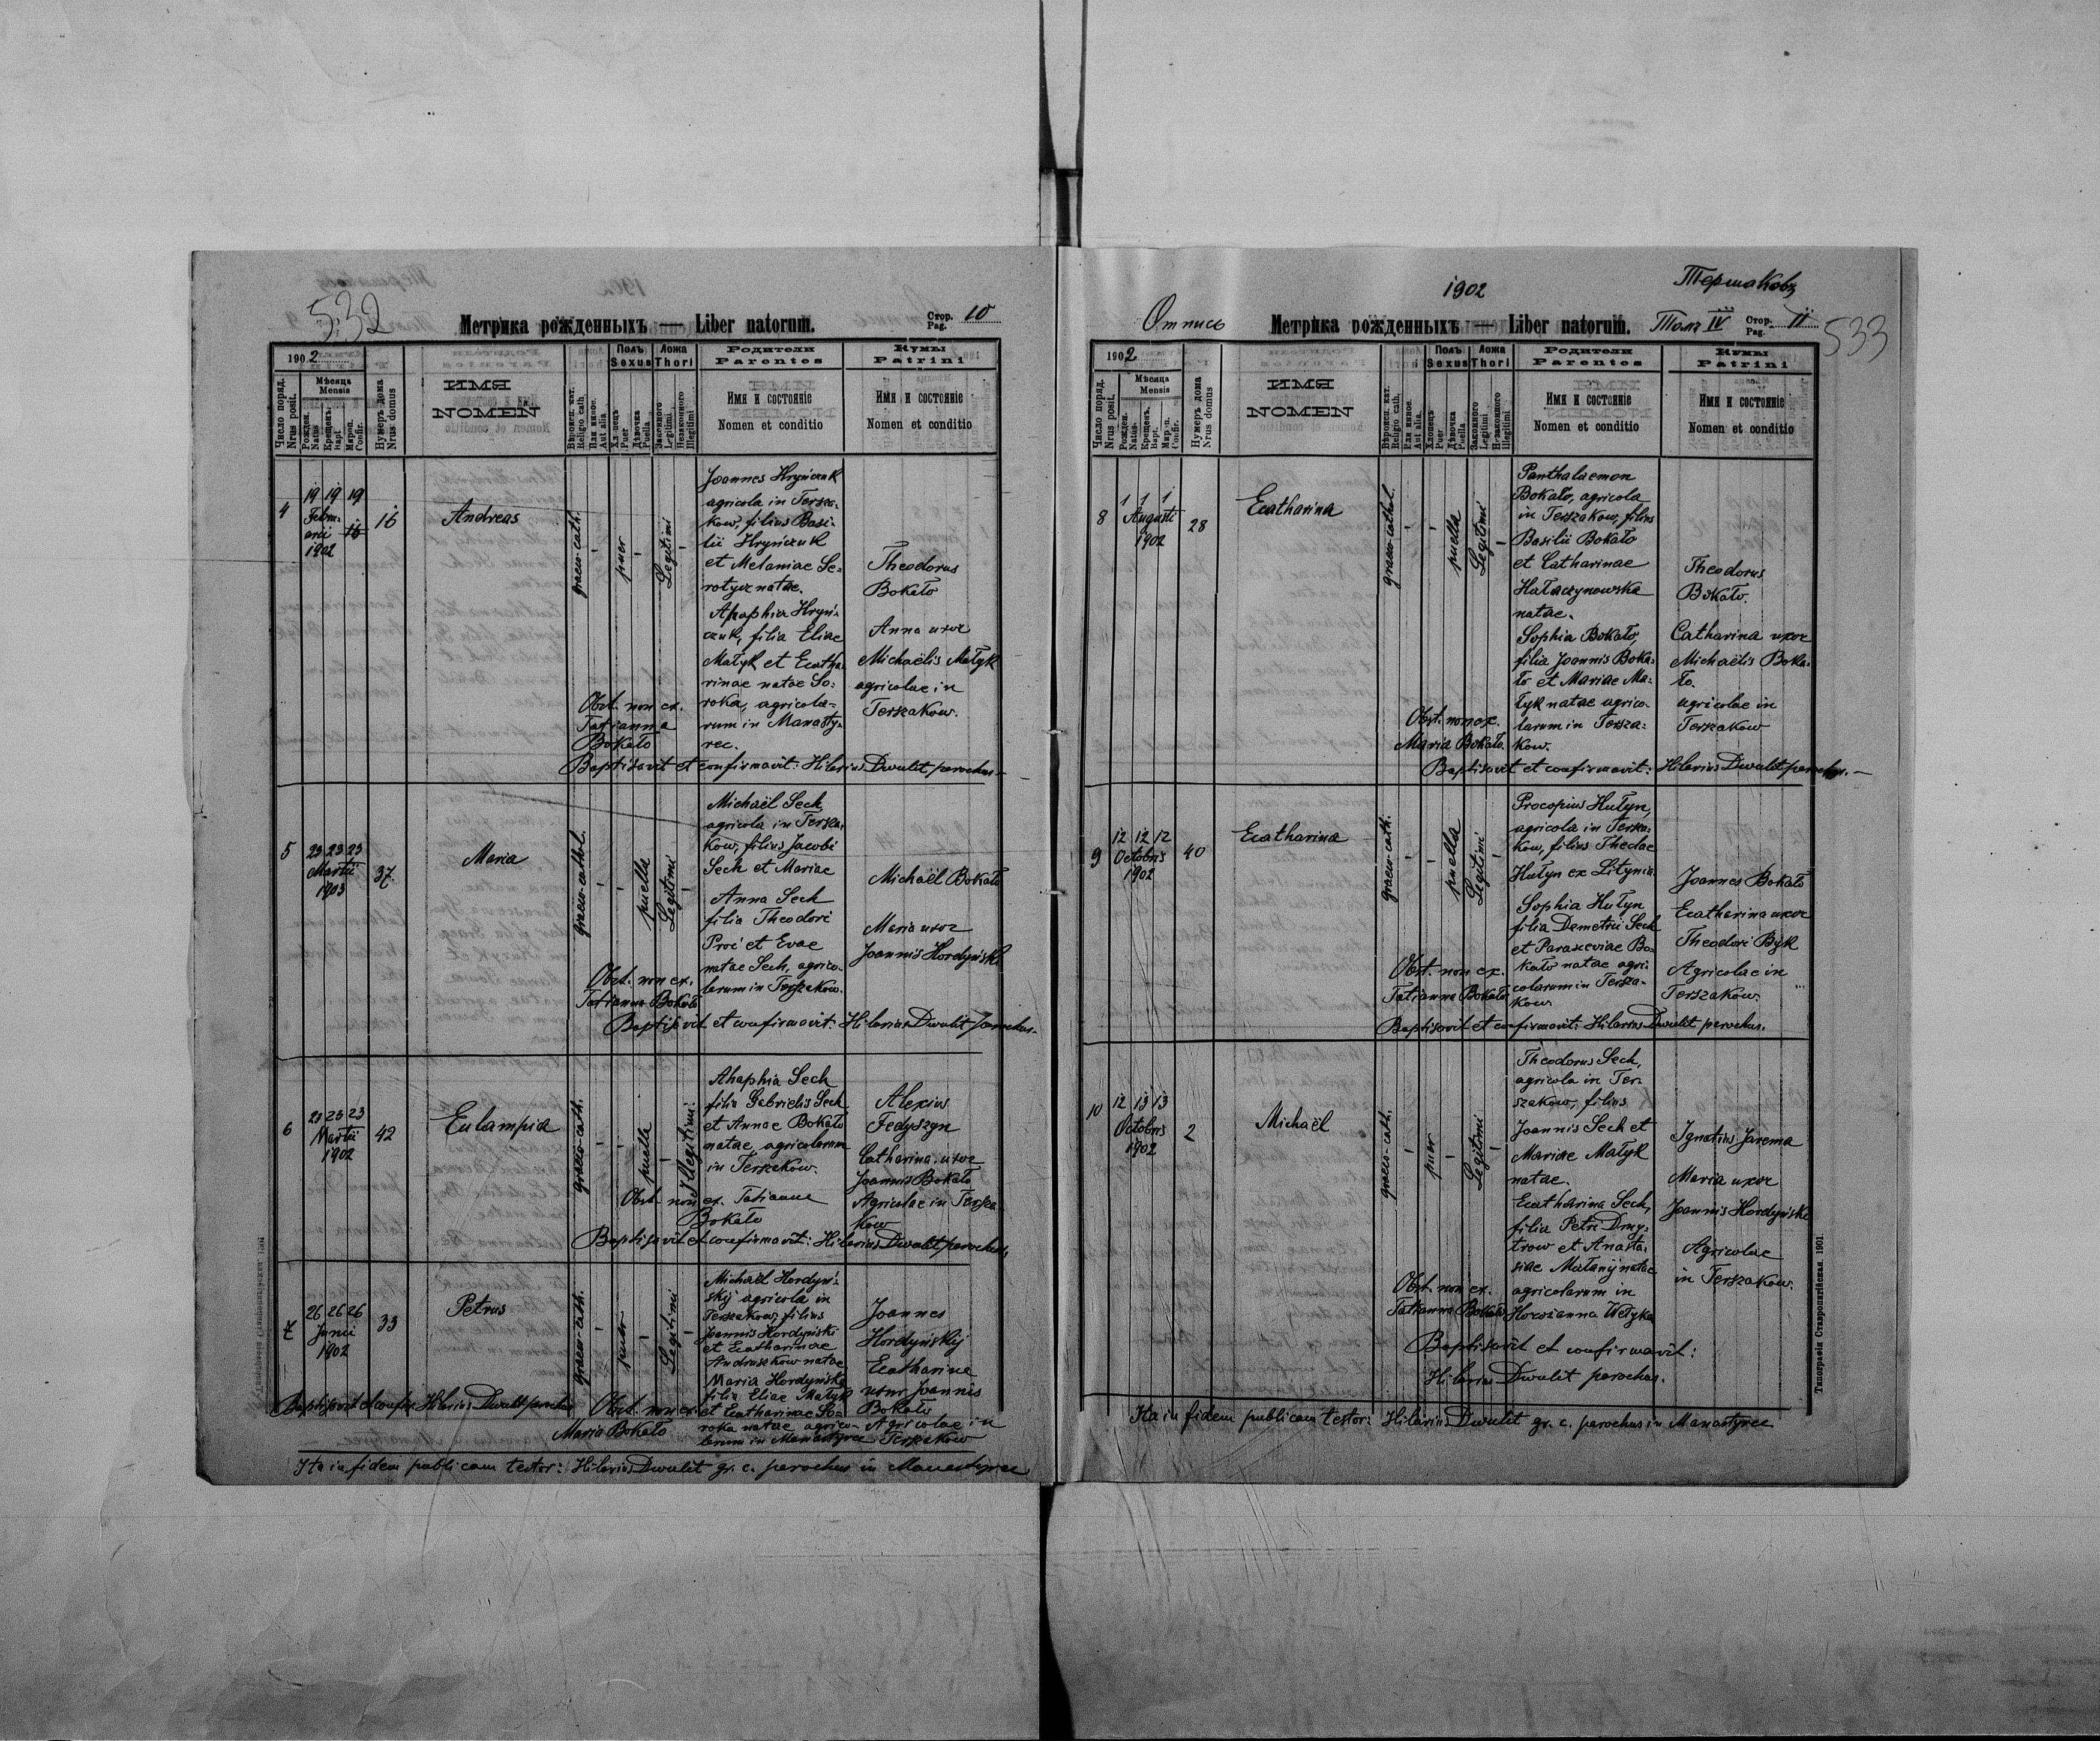 532
Метрика рожденныхъ — Liber natorum.
Стор. Pag. 10
1902
Число поряд. Nrus posit.
Мѣсяца Mensis
Рожден. Natus
Крещенъ. Bapt.
Миропом. Confir.
Нумеръ дома Nrus domus
ИМЯ
NOMEN
Вѣроисп. кат. Religio cath.
Или инное. Aut alia
Полъ Sexus
Хлопець Puer
Дѣвочка Puella
Ложа Thori
Законного Legitimi
Незаконного Illegitimi
Родители
Parentes
Имя и состоянiе
Nomen et conditio
Кумы
Patrini
Имя и состоянiе
Nomen et conditio
4
19 19 19
Febru-
arii
1902
16
Andreas
graeco-cath.
puer
Legitimi
Joannes Hryńczuk
agricola in Tersza-
kow, filius Basi-
lii Hryńczuk
et Melaniae Se-
rotycz natae.
Ahaphia Hryń-
czuk, filia Eliae
Małyk et Ecatha-
rinae natae So-
roka, agricola-
rum in Manasty-
rec.
Theodorus
Bokało
Anna uxor
Michaëlis Małyk
agricolae in
Terszakow.
Obst. non ex.
Tatianna
Bokało
Baptisavit et confirmavit: Hilarius Dwulit parochus
5
23 23 23
Martii
1903
37
Maria
graeco-cathol.
puella
Legitimi
Michaël Sech,
agricola in Tersza-
kow, filius Jacobi
Sech et Mariae
Anna Sech
filia Theodori
Proć et Evae
natae Sech, agrico-
larum in Terszakow.
Michaël Bokało
Maria uxor
Joannis Hordyński
Obst. non ex.
Tatianna Bokało
Baptisavit et confirmavit: Hilarius Dwulit parochus.
6
23 23 23
Martii
1902
42
Eulampia
graeco-cath.
puella
Illegitimi
Ahaphia Sech
filia Gabrielis Sech
et Annae Bokało
natae, agricolarum
in Terszakow.
Alexius
Fedyszyn
Catharina uxor
Joannis Bokało
Agricolae in Tersza-
kow
Obst. non ex. Tatianna
Bokało
Baptisavit et confirmavit: Hilarius Dwulit parochus.
7
26 26 26
Junii
1902
33
Petrus
graeco-cath.
puer
Legitimi
Michaël Hordyń-
skij agricola in
Terszakow, filius
Joannis Hordyński
et Ecatharinae
Andruszkow natae
Maria Hordyńska
filia Eliae Małyk
et Ecatharinae So-
roka natae agrico-
larum in Manastyrec
Joannes
Hordyńskij
Ecatharina
uxor Joannis
Bokało
Agricolae in
Terszakow
Baptisavit et confir. Hilarius Dwulit parochus
Obst. non ex.
Maria Bokało
Ita in fidem publicam testor: Hilarius Dwulit gr. c. parochus in Manastyrec
1902
Термаковъ
Отпись
Метрика рожденныхъ — Liber natorum.
Томъ IV
Стор. Pag. 11
533
1902
Число поряд. Nrus posit.
Мѣсяца Mensis
Рожден. Natus
Крещенъ. Bapt.
Мироп. Confir.
Нумеръ дома Nrus domus
ИМЯ
NOMEN
Вѣроисп. кат. Religio cath.
Или инное. Aut alia.
Полъ Sexus
Хлопець Puer
Дѣвочка Puella
Ложа Thori
Законного Legitimi
Незаконного Illegitimi
Родители
Parentes
Имя и состоянiе
Nomen et conditio
Кумы
Patrini
Имя и состоянiе
Nomen et conditio
8
1 1 1
Augusti
1902
28
Ecatharina
graeco-cathol.
puella
Legitimi
Panthalaemon
Bokało, agricola
in Terszakow, filius
Basilii Bokało
et Catharinae
Hałaczynowska
natae.
Sophia Bokało,
filia Joannis Boka-
ło et Mariae Ma-
łyk natae agrico-
larum in Tersza-
kow.
Theodorus
Bokało.
Catharina uxor
Michaëlis Boka-
ło.
agricolae in
Terszakow
Obst. non ex.
Maria Bokało.
Baptisavit et confirmavit: Hilarius Dwulit parochus.
9
12 12 12
Octobris
1902
40
Ecatharina
graeco-cath.
puella
Legitimi
Procopius Hułyn,
agricola in Tersza-
kow, filius Theclae
Hułyn ex Litynia
Sophia Hułyn
filia Demetrii Sech
et Parasceviae Bo-
kało natae agri-
colarum in Tersza-
kow.
Joannes Bokało
Ecatharina uxor
Theodori Byk
Agricolae in
Terszakow.
Obst. non ex.
Tatianna Bokało
Baptisavit et confirmavit: Hilarius Dwulit parochus.
10
12 13 13
Octobris
1902
2
Michaël
graeco-cath.
puer
Legitimi
Theodorus Sech,
agricola in Ter-
szakow, filius
Joannis Sech et
Mariae Małyk
natae.
Ecatharina Sech,
filia Petri Dmy-
trow et Anasta-
siae Małanij natae
agricolarum in
Hoczanna Wełyka
Ignatius Jarema
Maria uxor
Joannis Hordyński
Agricolae
in Terszakow.
Obst. non ex.
Tatianna Bokało
Baptisavit et confirmavit:
Hilarius Dwulit parochus.
Ita in fidem publicam testor: Hilarius Dwulit gr. c. parochus in Manastyrec
Типографія Ставропигійская. 1901.